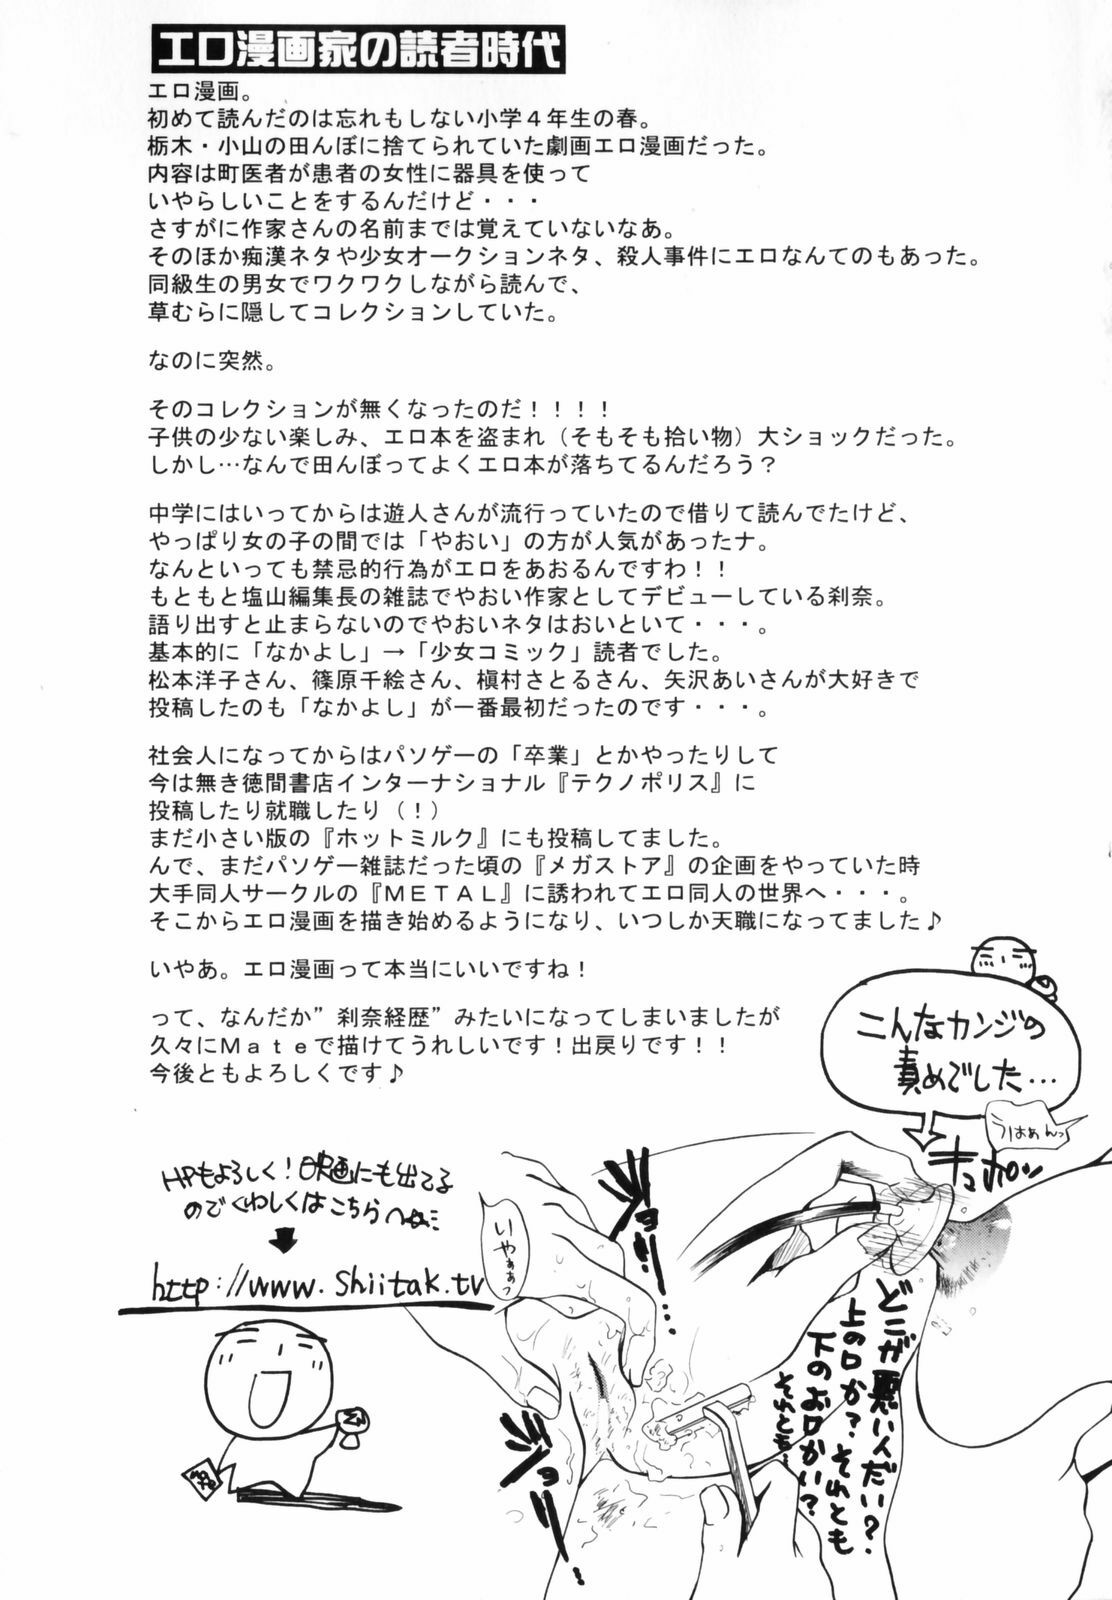 エロ漫画家の読者時代
エロ漫画。
初めて読んだのは忘れもしない小学４年生の春。
栃木・小山の田んぼに捨てられていた劇画エロ漫画だった。
内容は町医者が患者の女性に器具を使って
いやらしいことをするんだけど・・・
さすがに作家さんの名前までは覚えていないなあ。
そのほか痴漢ネタや少女オークションネタ、殺人事件にエロなんてのもあった。
同級生の男女でワクワクしながら読んで、
草むらに隠してコレクションしていた。
なのに突然。
そのコレクションが無くなったのだ！！！！
子供の少ない楽しみ、エロ本を盗まれ（そもそも拾い物）大ショックだった。
しかし…なんで田んぼってよくエロ本が落ちてるんだろう？
中学にはいってからは遊人さんが流行っていたので借りて読んでたけど、
やっぱり女の子の間では「やおい」の方が人気があったナ。
なんといっても禁忌的行為がエロをあおるんですわ！！
もともと塩山編集長の雑誌でやおい作家としてデビューしている刹奈。
語り出すと止まらないのでやおいネタはおいといて・・・。
基本的に「なかよし」→「少女コミック」読者でした。
松本洋子さん、篠原千絵さん、槇村さとるさん、矢沢あいさんが大好きで
投稿したのも「なかよし」が一番最初だったのです・・・。
社会人になってからはパソゲーの「卒業」とかやったりして
今は無き徳間書店インターナショナル『テクノポリス』に
投稿したり就職したり（！）
まだ小さい版の『ホットミルク』にも投稿してました。
んで、まだパソゲー雑誌だった頃の『メガストア』の企画をやっていた時
大手同人サークルの『ＭＥＴＡＬ』に誘われてエロ同人の世界へ・・・。
そこからエロ漫画を描き始めるようになり、いつしか天職になってました♪
いやあ。エロ漫画って本当にいいですね！
って、なんだか”刹奈経歴”みたいになってしまいましたが
久々にＭａｔｅで描けてうれしいです！出戻りです！！
今後ともよろしくです♪
こんなカンジの
責めでした…
うはぁんっ
キュポッ
HPもよろしく！映画にも出てる
のでくわしくはこちらへ
http://www.shiitak.tv
いやぁぁっ
どこが悪いんだい？
上の口か？それとも
下のお口かい？
それとも…